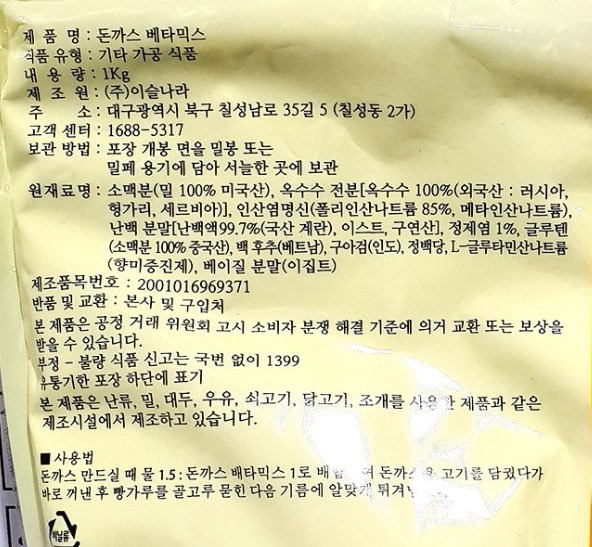 제 품 명 : 돈까스 베타믹스
식품 유형 : 기타 가공 식품
내 용 량 : 1Kg
제 조 원 : (주)이슬나라
주 소 : 대구광역시 북구 칠성남로 35길 5 (칠성동 2가)
고객 센터 : 1688-5317
보관 방법 : 포장 개봉 면을 밀봉 또는
밀폐 용기에 담아 서늘한 곳에 보관
원재료명 : 소맥분(밀 100% 미국산), 옥수수 전분[옥수수 100%(외국산 : 러시아,
헝가리, 세르비아)], 인산염명신(폴리인산나트륨 85%, 메타인산나트륨),
난백 분말[난백액99.7%(국산 계란), 이스트, 구연산], 정제염 1%, 글루텐
(소맥분 100% 중국산), 백 후추(베트남), 구아검(인도), 정백당, L-글루타민산나트륨
(향미증진제), 베이질 분말(이집트)
제조품목번호 : 2001016969371
반품 및 교환 : 본사 및 구입처
본 제품은 공정 거래 위원회 고시 소비자 분쟁 해결 기준에 의거 교환 또는 보상을
받을 수 있습니다.
부정 - 불량 식품 신고는 국번 없이 1399
유통기한 포장 하단에 표기
본 제품은 난류, 밀, 대두, 우유, 쇠고기, 닭고기, 조개를 사용 한 제품과 같은
제조시설에서 제조하고 있습니다.
■ 사용법
돈까스 만드실 때 물 1.5 : 돈까스 배타믹스 1로 배 여 돈까스용 고기를 담궜다가
바로 꺼낸 후 빵가루를 골고루 묻힌 다음 기름에 알맞게 튀겨
비닐류